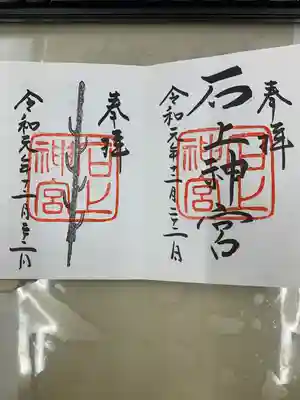 奉拝
石上神宮
石上神宮
令和元年十一月二十二日
奉拝
石上神宮
令和元年十一月二十二日